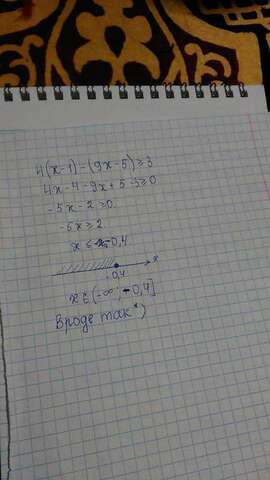 4(x-1)-(9x-5)≥3
4x-4-9x+5-3≥0
-5x-2≥0
-5x≥2
x≤-0,4
x
-0,4
x∈(-∞;-0,4]
Вроде так*)